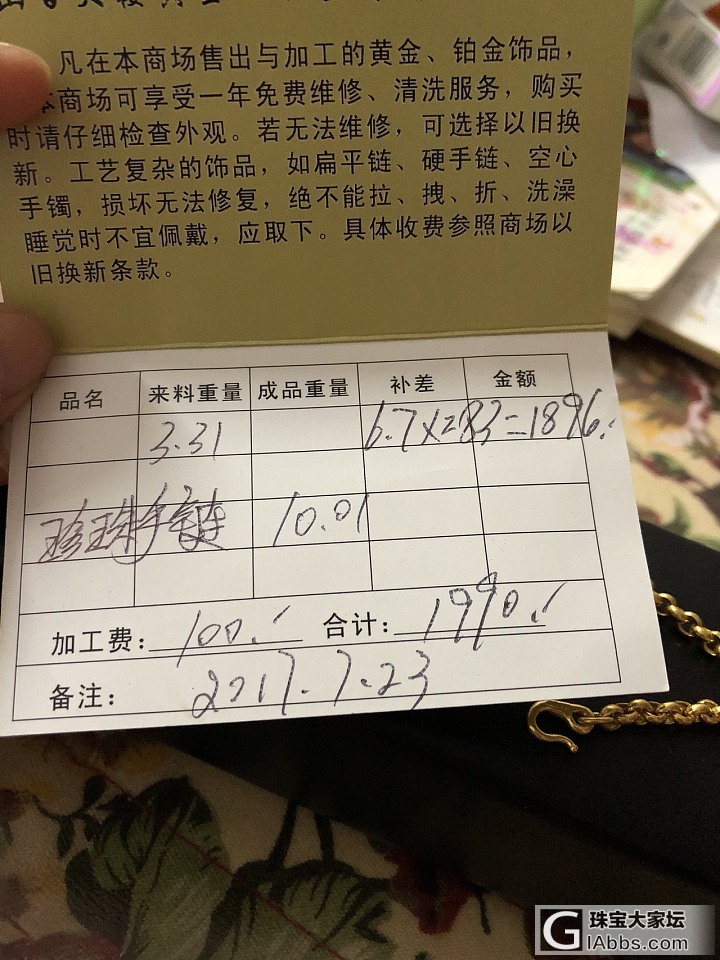 凡在本商场售出与加工的黄金、铂金饰品，
本商场可享受一年免费维修、清洗服务，购买
时请仔细检查外观。若无法维修，可选择以旧换
新。工艺复杂的饰品，如扁平链、硬手链、空心
手镯，损坏无法修复，绝不能拉、拽、折、洗澡
睡觉时不宜佩戴，应取下。具体收费参照商场以
旧换新条款。
品名 来料重量 成品重量 补差 金额
3.31 6.7×283=1896.
珍珠手链 10.01
加工费：100. 合计：1990.
备注：2017.7.23
G 珠宝大家坛
IAbbs.com